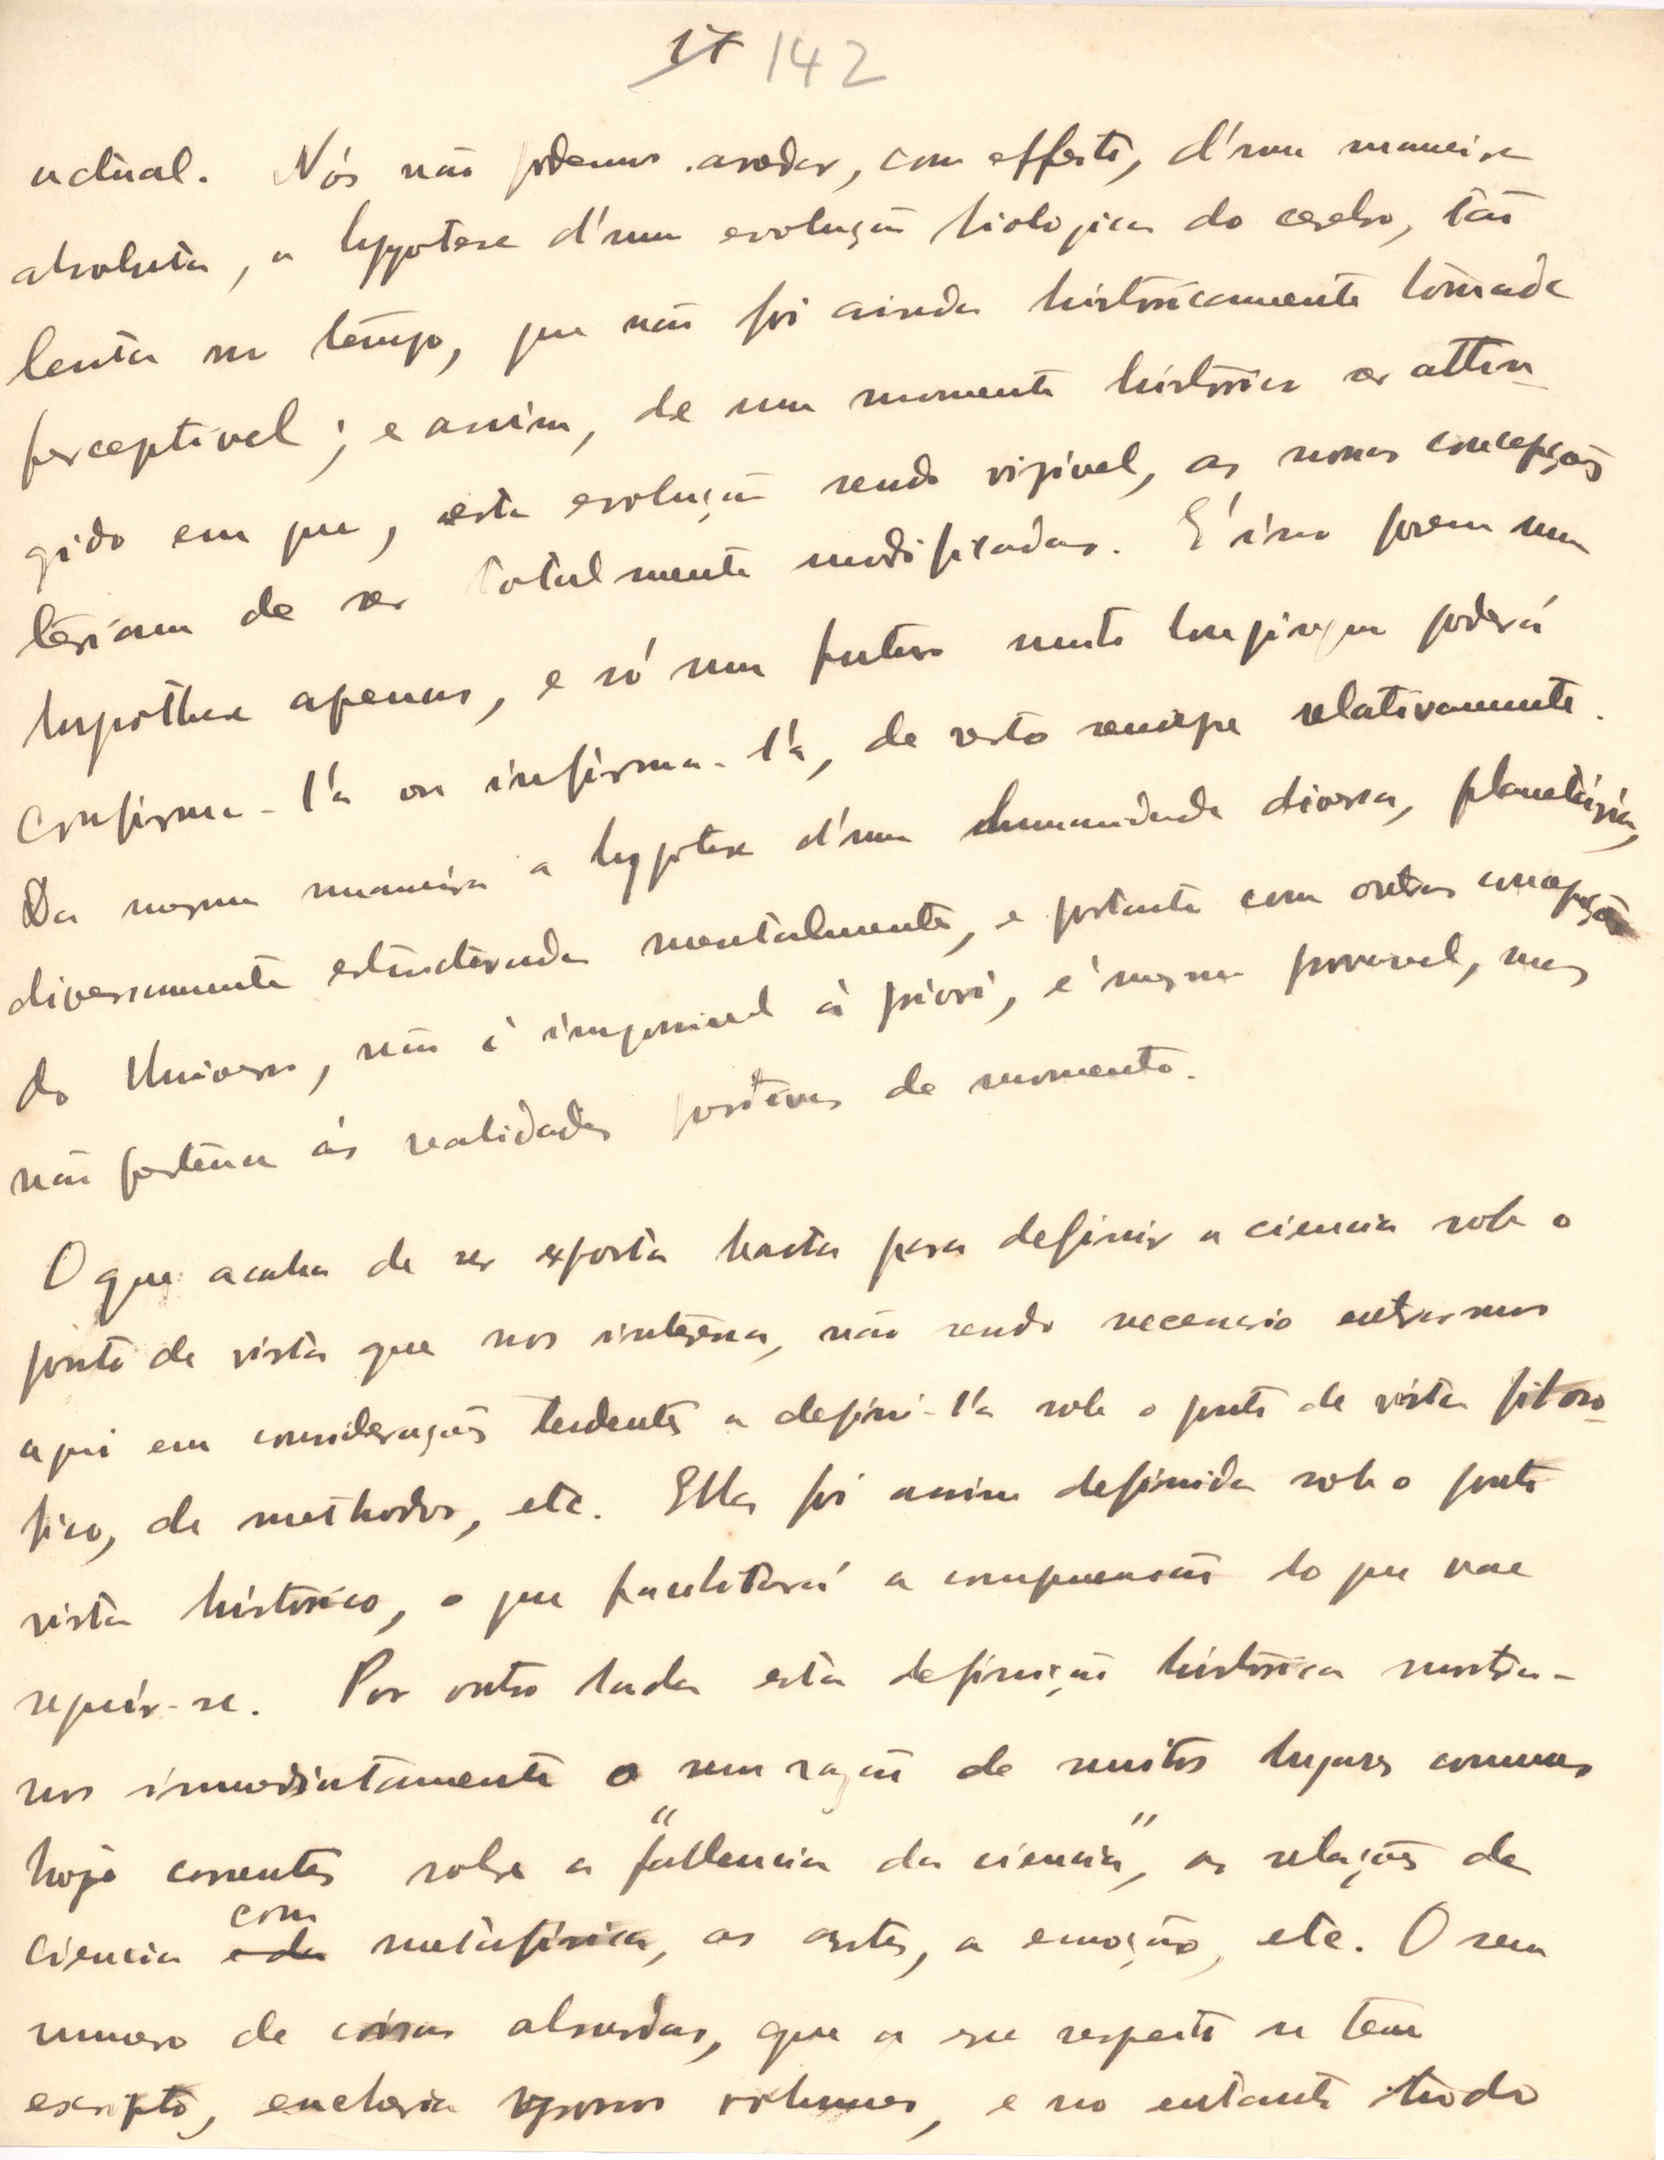 142
actual. Nós não podemos arredar, com effeito, d'uma maneira
absoluta, a hypotese d'uma evolução biologica do cerebro, tão
lenta no tempo, que não foi ainda historicamente tomada
perceptivel; e assim, de um momento historico ser attin-
gido em que, esta evolução sendo visivel, as nossas concepções
teriam de ser totalmente modificadas. E' isso porem uma
hypothese apenas, e só um futuro muito longinquo poderá
confirma-l'a ou infirma-l'a, de resto sempre relativamente.
Da mesma maneira a hypotese d'uma humanidade diversa, planetária,
diversamente estructurada mentalmente, e portanto com outras concepções
do Universo, não é impossivel á priori, é mesmo provavel, mas
não pertence ás realidades positivas de momento.
O que acaba de ser exposto basta para definir a ciencia sob o
ponto de vista que nos interessa, não sendo necessario entrarmos
aqui em considerações tendentes a defini-l'a sob o ponto de vista filoso-
fico, de methodos, etc. Ella foi assim definida sob o ponto
vista histórico, o que facilitará a compreensão do que vae
seguir-se. Por outro lado esta definição histórica mostra-
nos immediatamente o sem razão de muitos lugares comuns
hoje correntes sobre a "fallencia da ciencia", as relações da
ciencia com metafísica, as artes, a emoção, etc. O sem
numero de coisas absurdas, que a esse respeito se tem
escripto, encheria volumes, e no entanto tudo